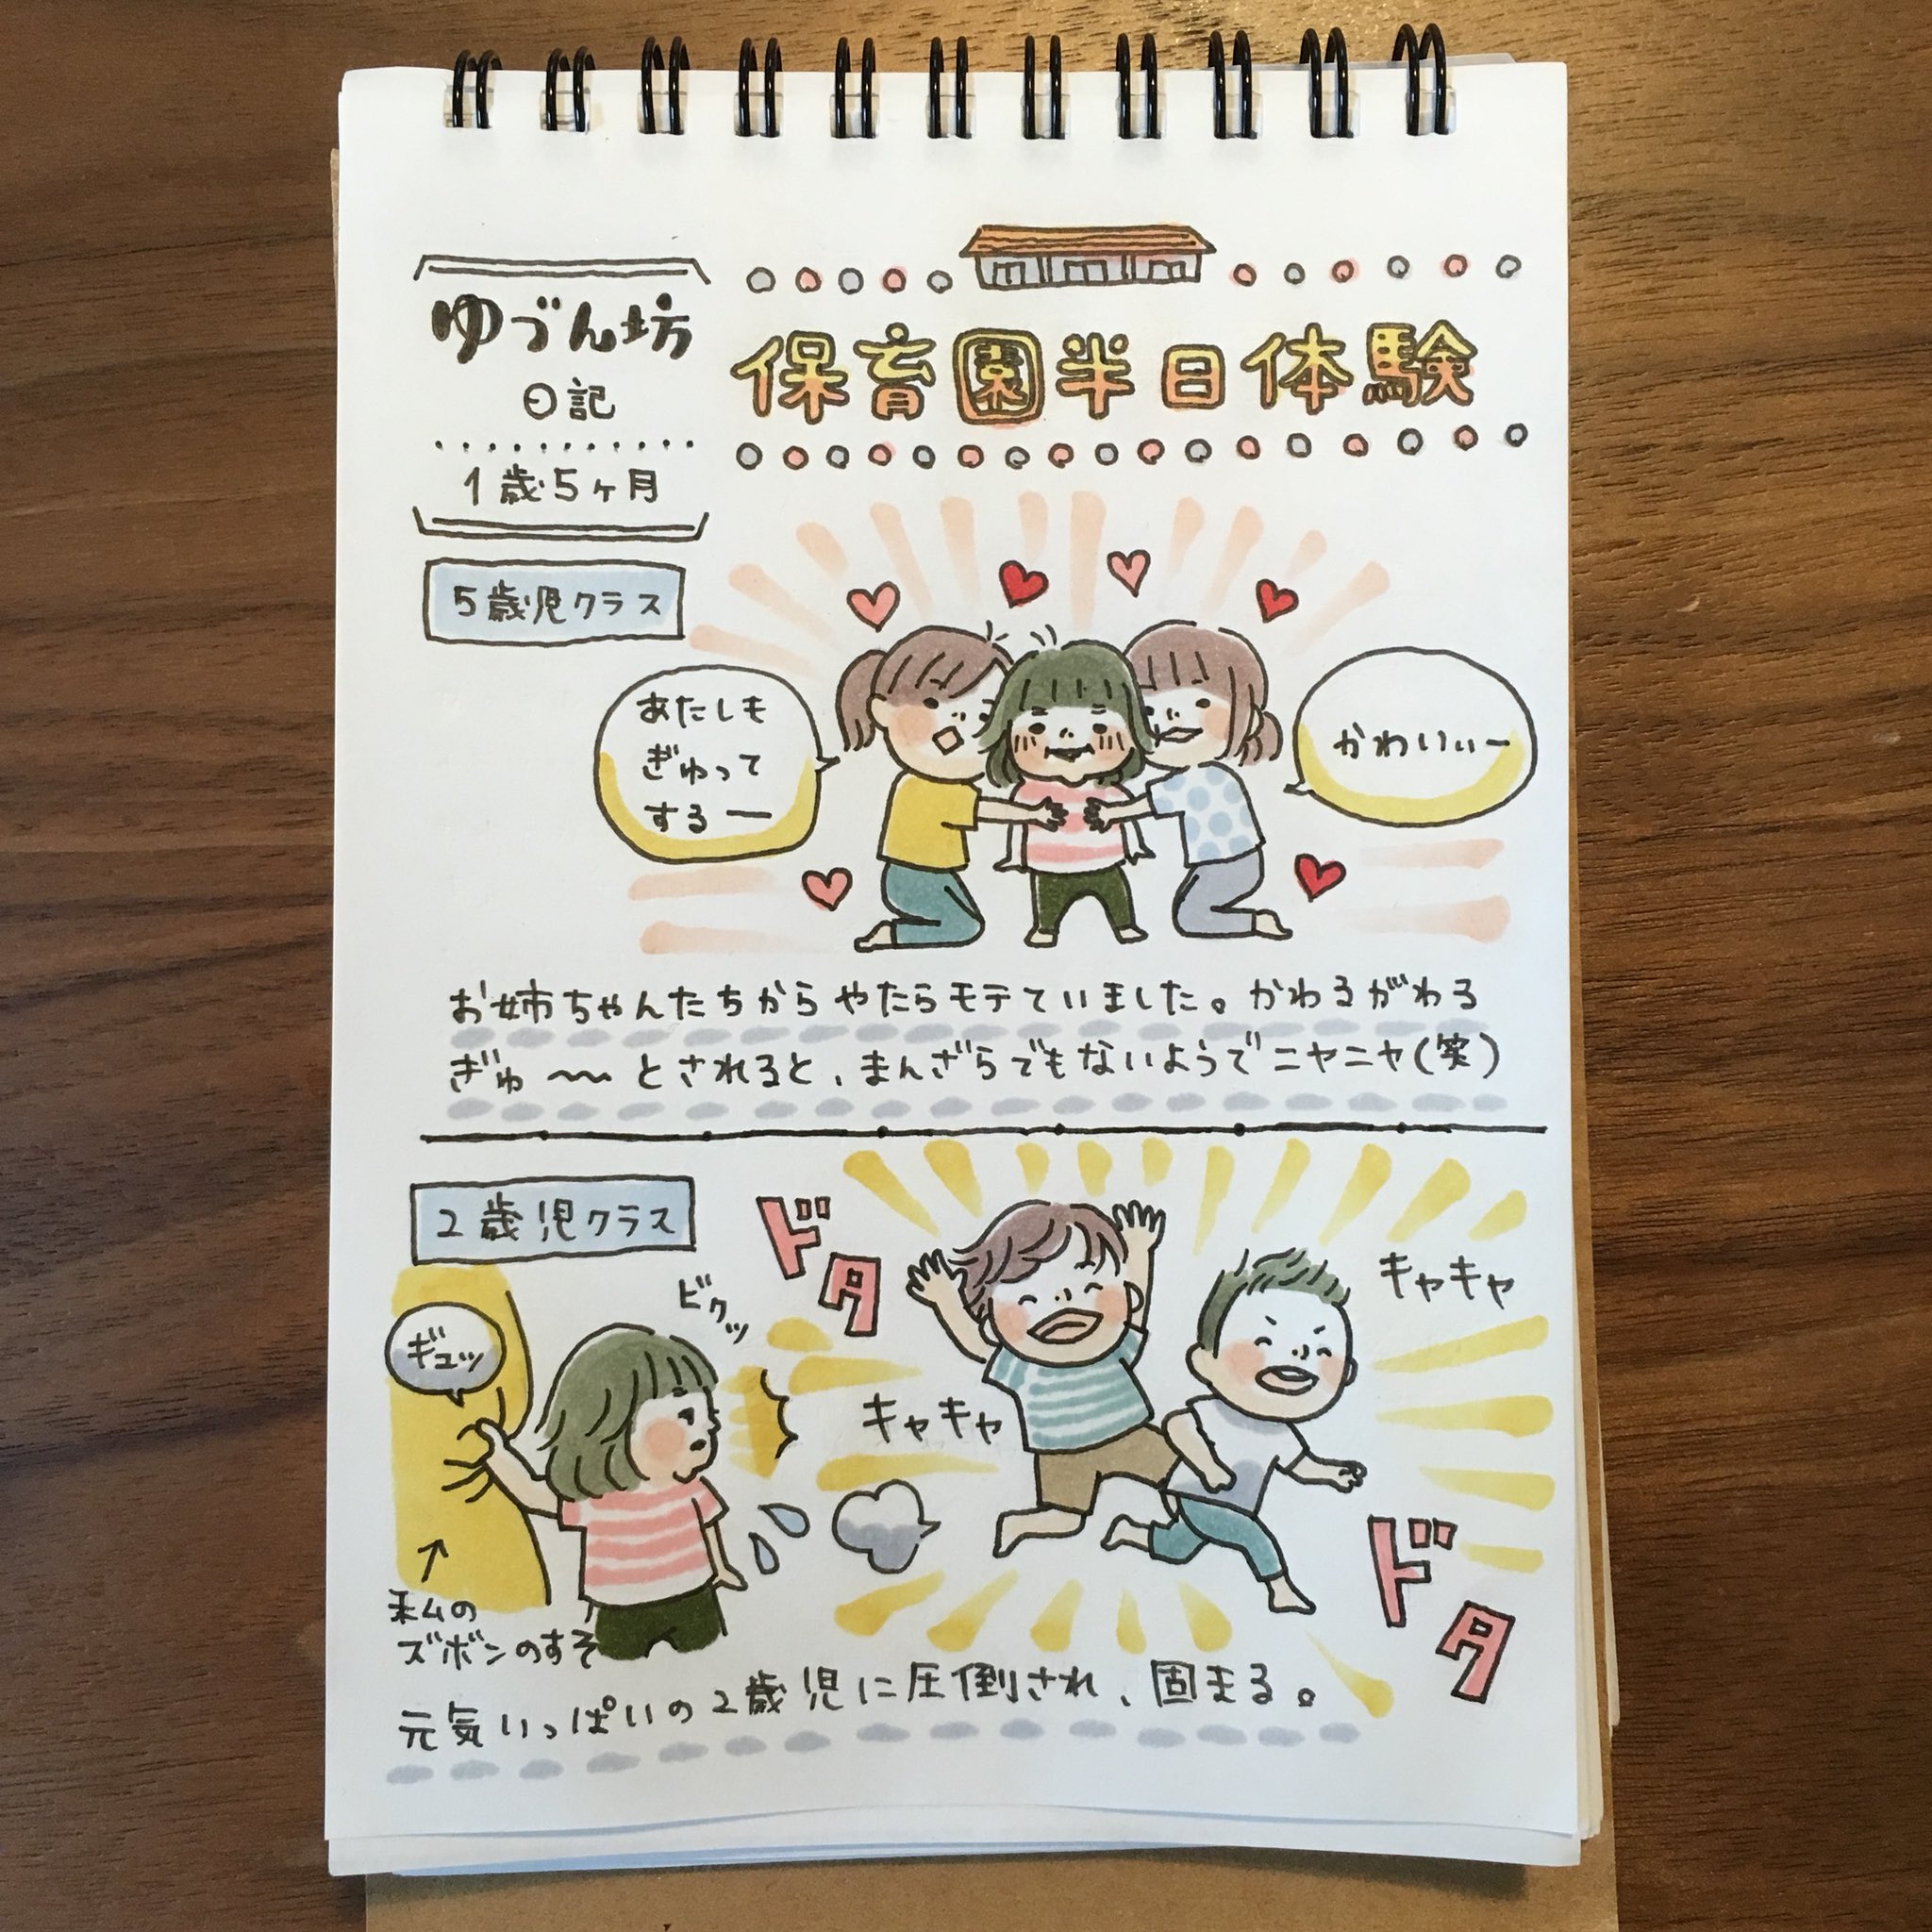 ゆづん坊
日記
1歳5ヶ月
保育園半日体験
5歳児クラス
あたしも
ぎゅって
するー
かわいぃー
お姉ちゃんたちからやたらモテていました。かわるがわる
ぎゅ〜〜とされると、まんざらでもないようでニヤニヤ(笑)
2歳児クラス
ギュッ
ビクッ
ドタ
キャキャ
キャキャ
ドタ
↑
私の
ズボンのすそ
元気いっぱいの2歳児に圧倒され、固まる。